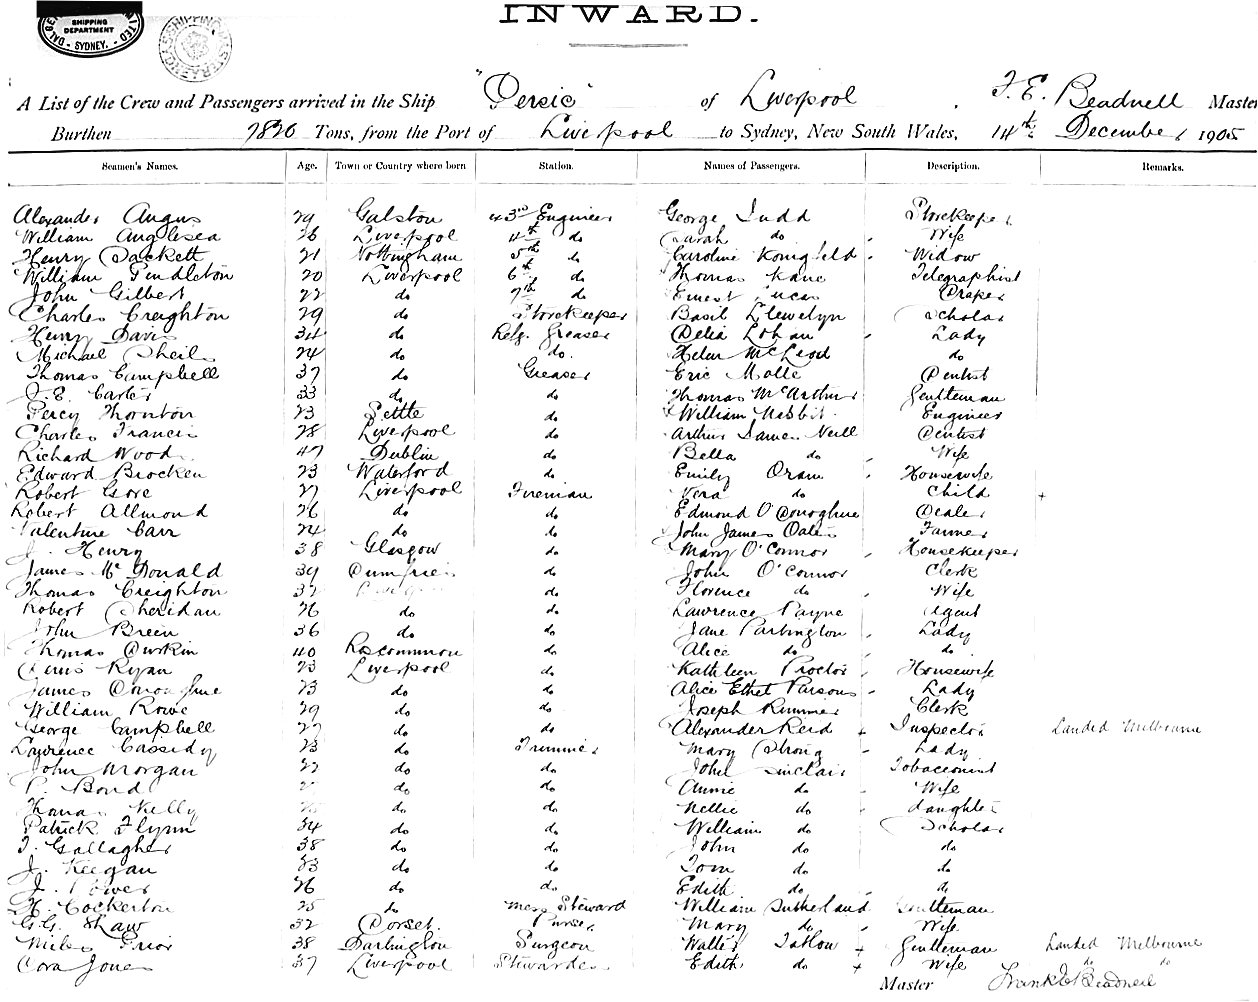 SHIPPING
DEPARTMENT
- SYDNEY. -
INWARD.
A List of the Crew and Passengers arrived in the Ship "Persic" of Liverpool, F. E. Beadnell Master
Burthen 7826 Tons, from the Port of Liverpool to Sydney, New South Wales, 14th December 1905
Seamen's Names. Age. Town or Country where born Station. Names of Passengers. Description. Remarks.
Alexander Angus 29 Galston 3rd Engineer George Judd Storekeeper
William Anglesea 26 Liverpool 4th do Sarah do Wife
Henry Sackett 21 Nottingham 5th do Caroline Konigfeld Widow
William Pendleton 20 Liverpool 6th do Thomas Kane Telegraphist
John Gilbert 22 do 7th do Ernest Lucas Draper
Charles Creighton 29 do Storekeeper Basil Llewelyn Scholar
Henry Davis 34 do Refg. Greaser Delia Lohan Lady
Michael Sheils 24 do do. Helen McLeod do
Thomas Campbell 37 do Greaser Eric Malle Dentist
J. E. Carter 33 do do Thomas McArthur Gentleman
Percy Thornton 23 Settle do William Nesbit Engineer
Charles Francis 28 Liverpool do Arthur James Neill Dentist
Richard Wood 47 Dublin do Bella do Wife
Edward Brocken 23 Waterford do Emily Oram Housewife
Robert Gore 27 Liverpool Fireman Vera do Child
Robert Allmond 26 do do Edmond O'Donoghue Dealer
Valentine Carr 24 do do John James Oates Farmer
J. Henry 38 Glasgow do Mary O'Connor Housekeeper
James McDonald 39 Dumfries do John O'Connor Clerk
Thomas Creighton 32 do Florence do Wife
Robert Sheridan 26 do do Lawrence Payne Agent
John Breen 36 do do Jane Partington Lady
Thomas Durkin 40 Roscommon do Alice do do
Denis Ryan 23 Liverpool do Kathleen Proctor Housewife
James Donoghue 23 do do Alice Ethel Parsons Lady
William Rowe 29 do do Joseph Rimmer Clerk
George Campbell 27 do do Alexander Reid + Inspector Landed Melbourne
Lawrence Cassidy 23 do Trimmer Mary Strong Lady
John Morgan 22 do do John Sinclair Tobacconist
P. Bond do do Annie do Wife
Thomas Kelly do do Nellie do daughter
Patrick Flynn 34 do do William do Scholar
T. Gallagher 38 do do John do do
J. Keegan 23 do do Tom do do
J. Power 26 do do Edith do do
H. Cockerton 25 do Mess Steward William Sutherland Gentleman
G.G. Shaw 32 Dorset Purser Mary do Wife
Miles Prior 38 Darlington Surgeon Walter Tatlow + Gentleman Landed Melbourne
Cora Jones 37 Liverpool Stewardess Edith do + Wife do do
Master Frank E Beadnell